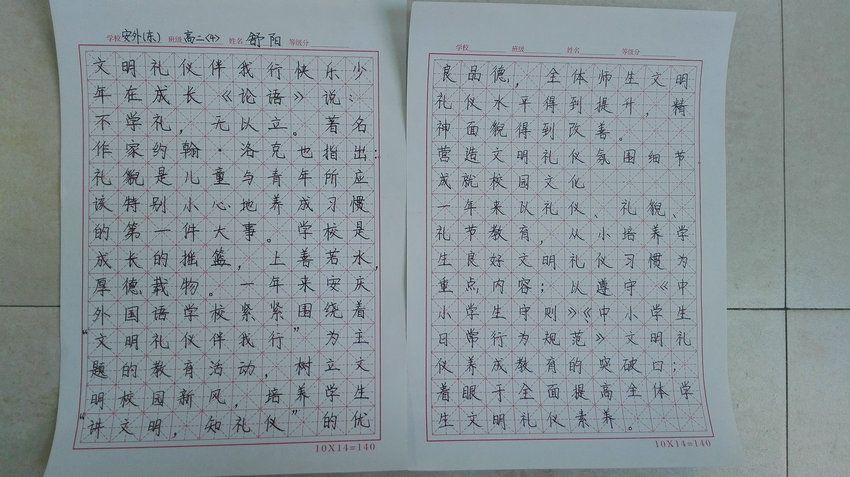 学校 安外(东) 班级 高二<4> 姓名 舒阳 等级分
文明礼仪伴我行快乐少
年在成长《论语》说：
不学礼，无以立。著名
作家约翰·洛克也指出：
礼貌是儿童与青年所应
该特别小心地养成习惯
的第一件大事。学校是
成长的摇篮，上善若水，
厚德载物。一年来安庆
外国语学校紧紧围绕着
“文明礼仪伴我行”为主
题的教育活动，树立文
明校园新风，培养学生
“讲文明，知礼仪”的优
10X14=140
学校 班级 姓名 等级分
良品德，全体师生文明
礼仪水平得到提升，精
神面貌得到改善。
营造文明礼仪氛围细节
成就校园文化
一年来以礼仪、礼貌、
礼节教育，从小培养学
生良好文明礼仪习惯为
重点内容；以遵守《中
小学生守则》《中小学生
日常行为规范》文明礼
仪养成教育的突破口；
着眼于全面提高全体学
生文明礼仪素养。
10X14=140